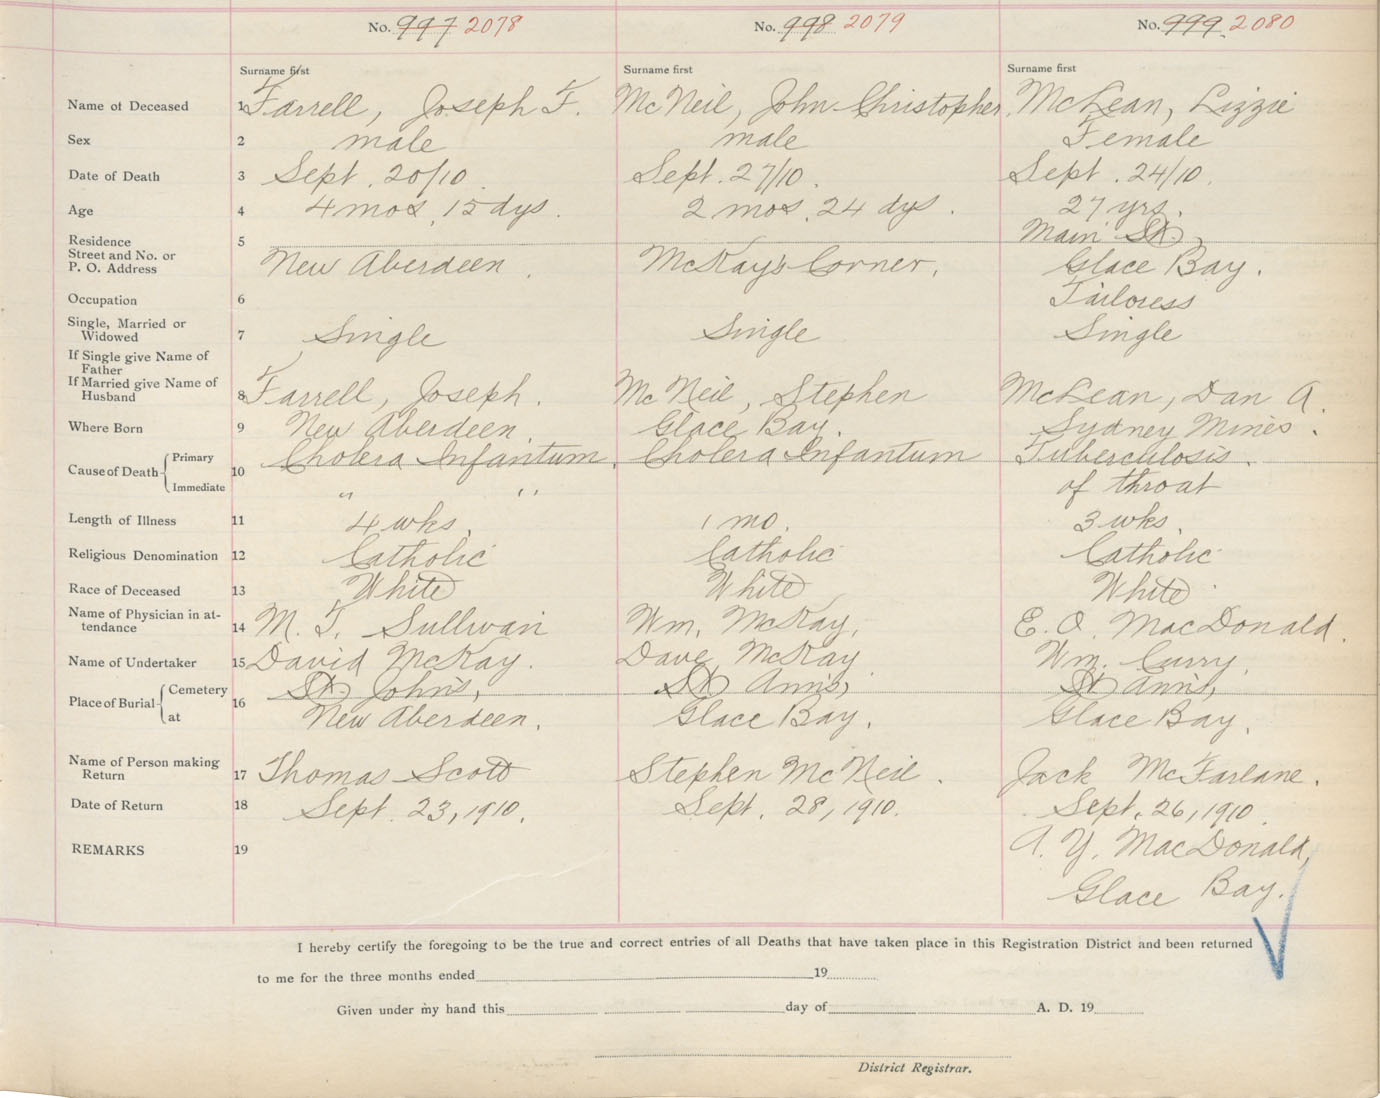 No. 997 2078 No. 998 2079 No. 999. 2080
Surname first Surname first Surname first
Name of Deceased 1 Farrell, Joseph F. McNeil, John Christopher. McLean, Lizzie
Sex 2 male male Female
Date of Death 3 Sept. 20/10. Sept. 27/10. Sept. 24/10.
Age 4 4 mos. 15 dys. 2 mos. 24 dys. 27 yrs.
Main St.,
Residence 5
Street and No. or
P. O. Address New Aberdeen. McKay's Corner. Glace Bay.
Occupation 6 Tailoress
Single, Married or
Widowed 7 Single Single Single
If Single give Name of
Father
If Married give Name of
Husband 8 Farrell, Joseph. McNeil, Stephen McLean, Dan A.
Where Born 9 New Aberdeen. Glace Bay. Sydney Mines.
Cause of Death 10 Primary Cholera Infantum. Cholera Infantum Tuberculosis.
Immediate " " of throat
Length of Illness 11 4 wks. 1 mo. 3 wks.
Religious Denomination 12 Catholic Catholic Catholic
Race of Deceased 13 White White White
Name of Physician in at-
tendance 14 M. T. Sullivan Wm. McKay. E. O. MacDonald.
Name of Undertaker 15 David McKay. Dave McKay Wm. Curry.
Place of Burial 16 Cemetery St. John's, St. Ann's, St. Ann's,
at New Aberdeen. Glace Bay. Glace Bay.
Name of Person making
Return 17 Thomas Scott Stephen McNeil. Jack McFarlane.
Date of Return 18 Sept. 23, 1910. Sept. 28, 1910. Sept. 26, 1910.
REMARKS 19 A. Y. MacDonald,
Glace Bay.
I hereby certify the foregoing to be the true and correct entries of all Deaths that have taken place in this Registration District and been returned
to me for the three months ended 19
Given under my hand this day of A. D. 19
District Registrar.